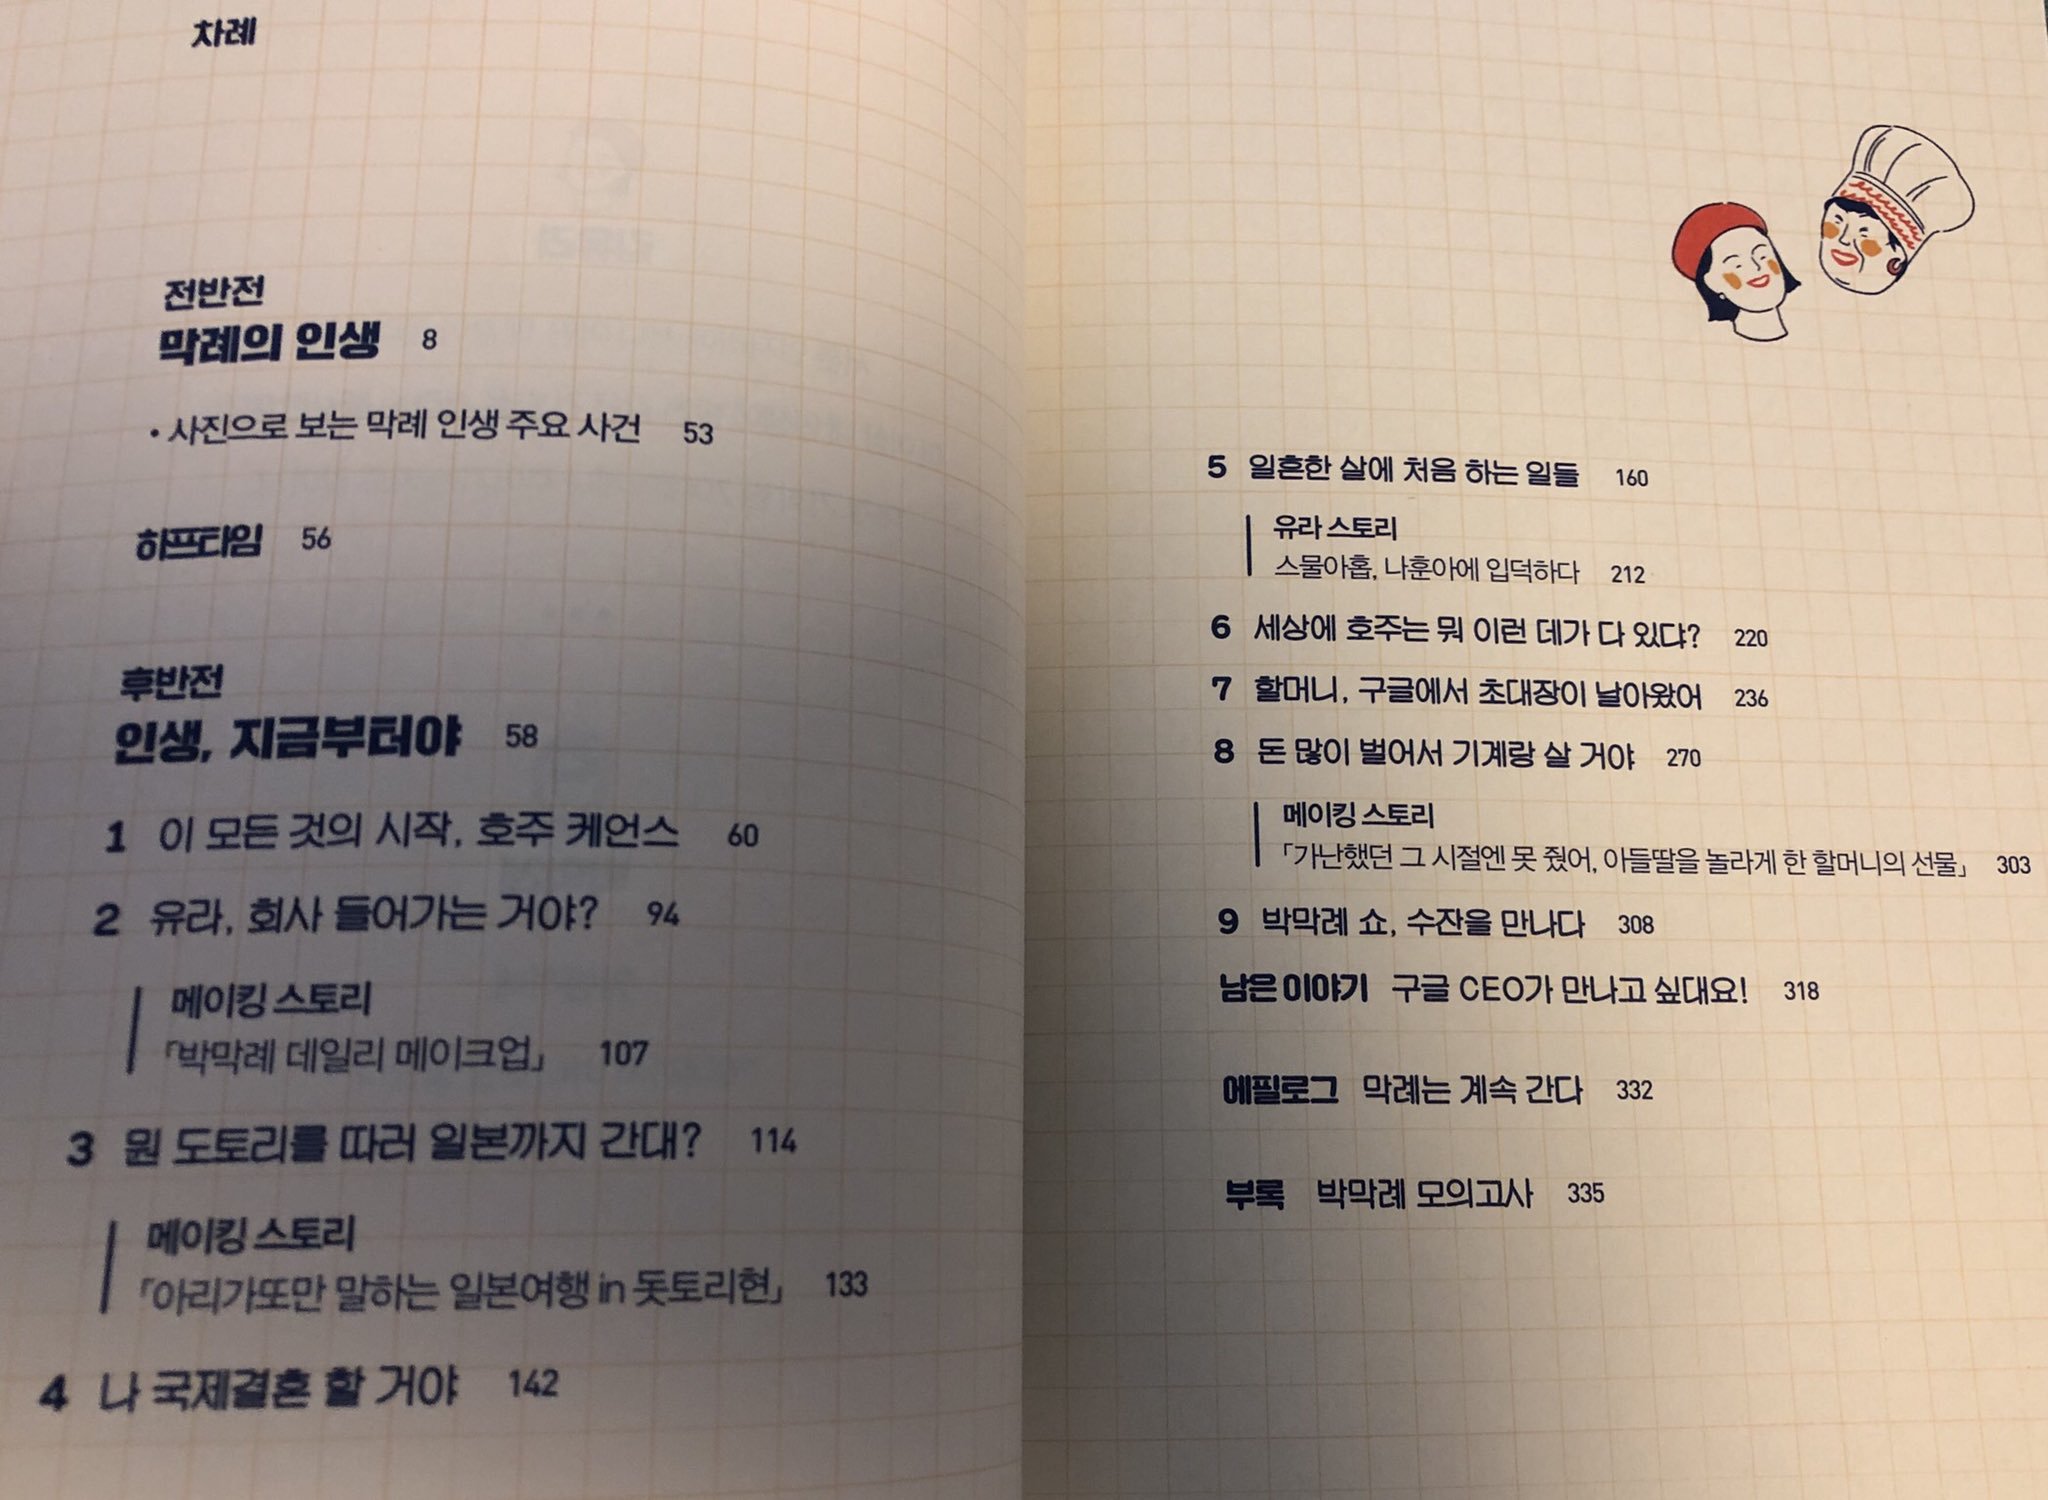 차례
전반전
막례의 인생 8
• 사진으로 보는 막례 인생 주요 사건 53
하프타임 56
후반전
인생, 지금부터야 58
1 이 모든 것의 시작, 호주 케언스 60
2 유라, 회사 들어가는 거야? 94
메이킹 스토리
「박막례 데일리 메이크업」 107
3 뭔 도토리를 따러 일본까지 간대? 114
메이킹 스토리
「아리가또만 말하는 일본여행 in 돗토리현」 133
4 나 국제결혼 할 거야 142
5 일흔한 살에 처음 하는 일들 160
유라 스토리
스물아홉, 나훈아에 입덕하다 212
6 세상에 호주는 뭐 이런 데가 다 있댜? 220
7 할머니, 구글에서 초대장이 날아왔어 236
8 돈 많이 벌어서 기계랑 살 거야 270
메이킹 스토리
「가난했던 그 시절엔 못 줬어, 아들딸을 놀라게 한 할머니의 선물」 303
9 박막례 쇼, 수잔을 만나다 308
남은 이야기 구글 CEO가 만나고 싶대요! 318
에필로그 막례는 계속 간다 332
부록 박막례 모의고사 335